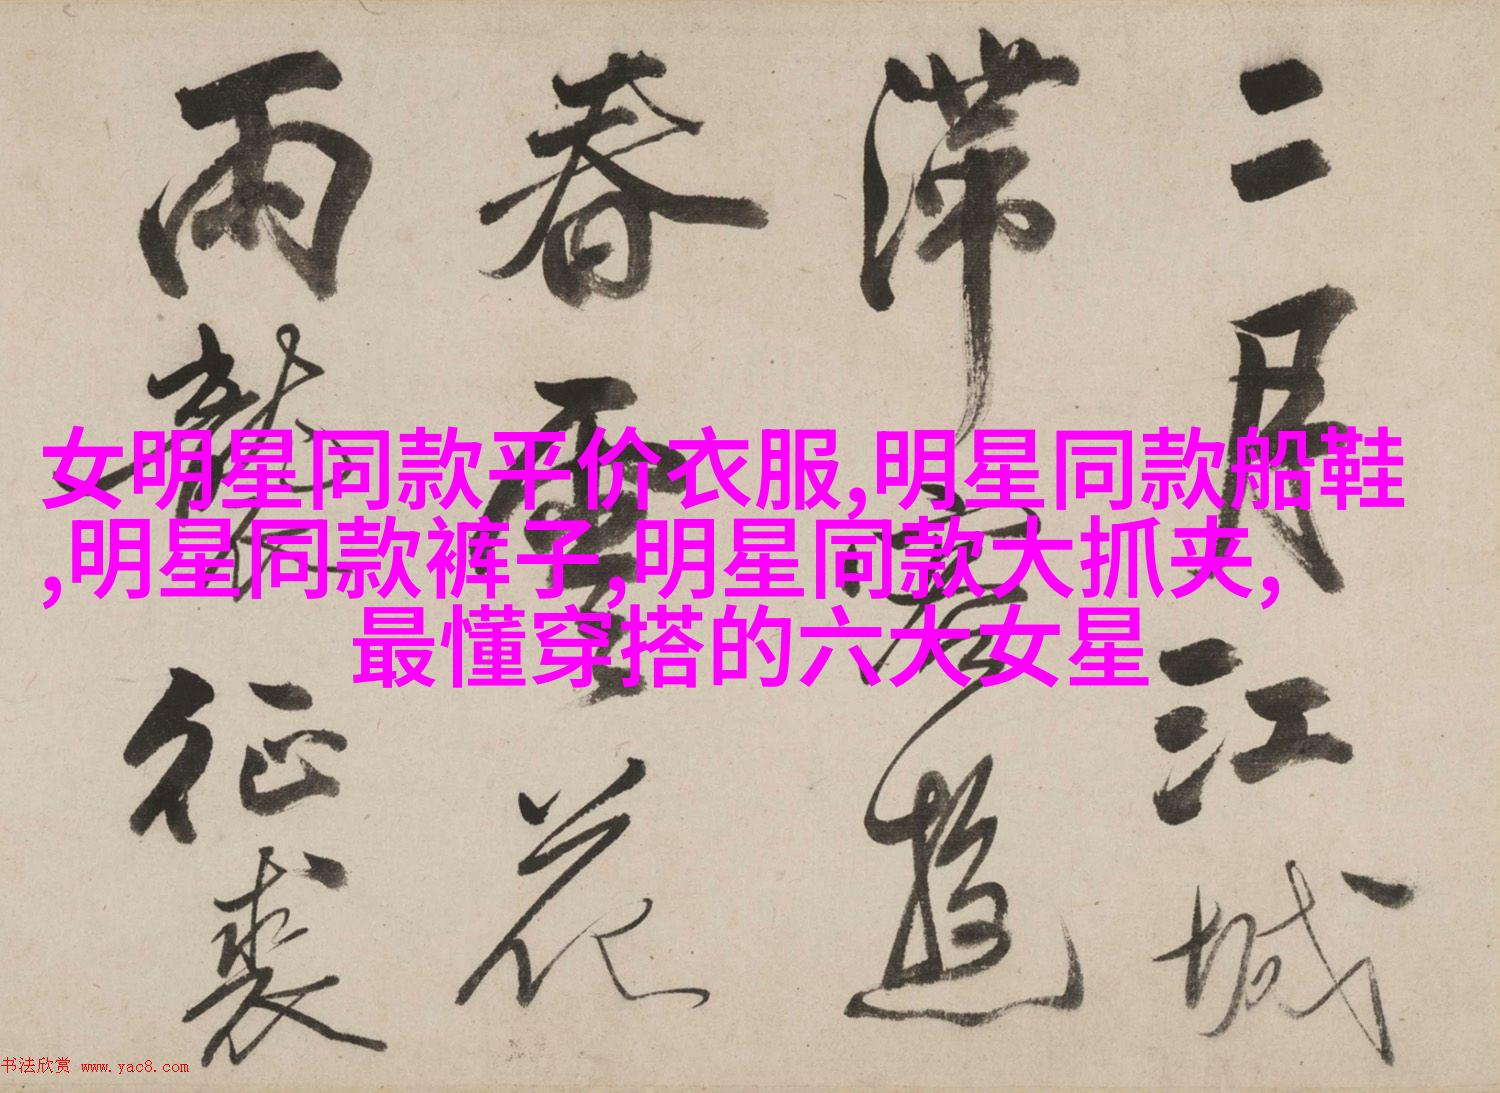 二月江城
滞客游
春雪花
两鬓征裘
女明星同款平价衣服,明星同款船鞋
,明星同款裤子,明星同款大抓夹,
最懂穿搭的六大女星
书法欣赏 www.yac8.com